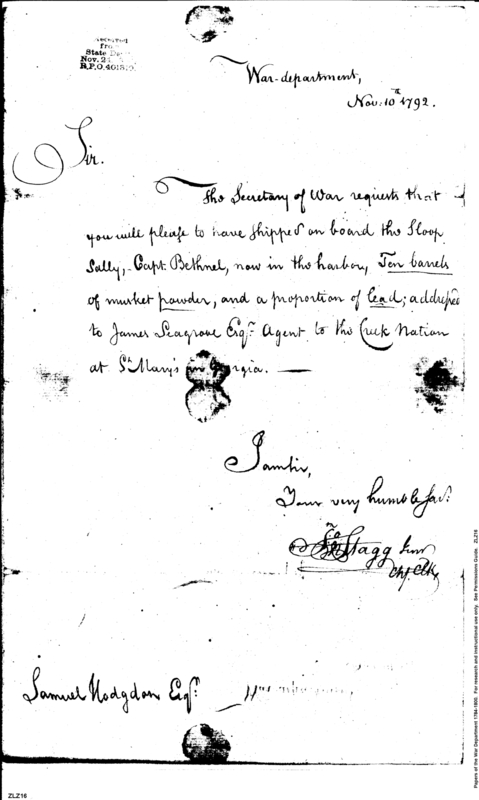 Received
from
State De
Nov. 2
R.P.O. 401315.
War-department,
Nov: 10th 1792.
Sir.
The Secretary of War requests that
you will please to have shipped on board the Sloop
Sally, Capt. Bethnel, now in the harbor, Ten barrels
of musket powder, and a proportion of lead; addressed
to James Seagrove Esqr. Agent to the Creek Nation
at St. Mary's in Georgia.
I am Sir,
Your very humble Ser.
Jno. Stagg Junr
Chf. Clk.
Samuel Hodgdon Esqr.
Papers of the War Department 1784-1800. For research and instructional use only. See Permissions Guide. ZLZ16
ZLZ16